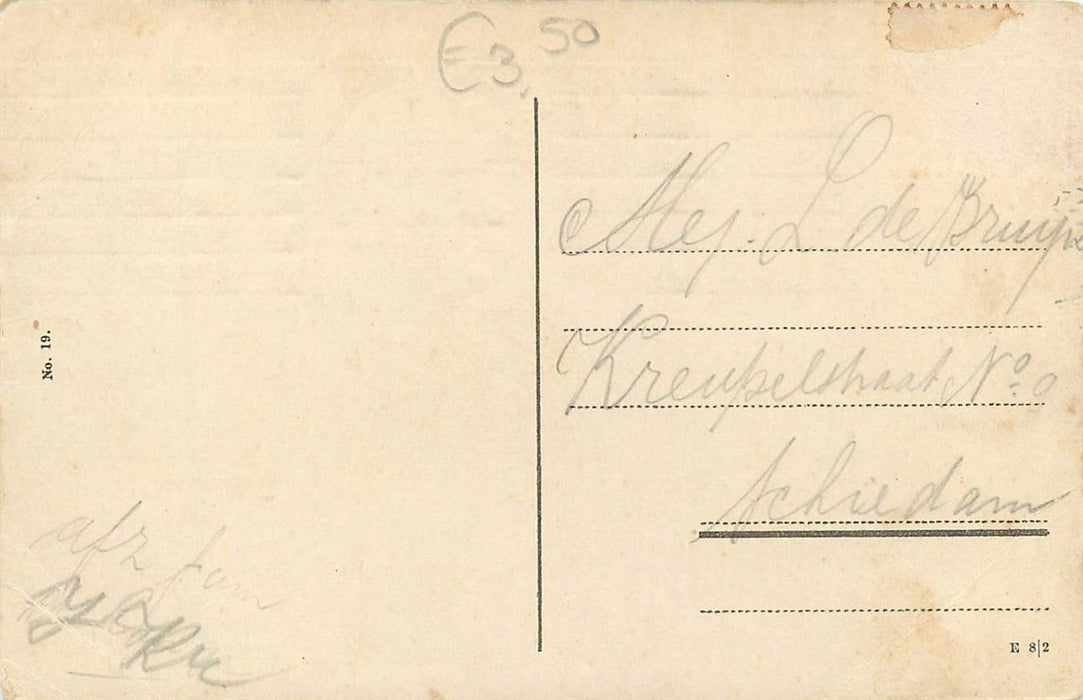 € 3,50
Mej. L de Bruijn
Kreupelstraat No. 9
Schiedam
No. 19.
afz fam
E 8|2